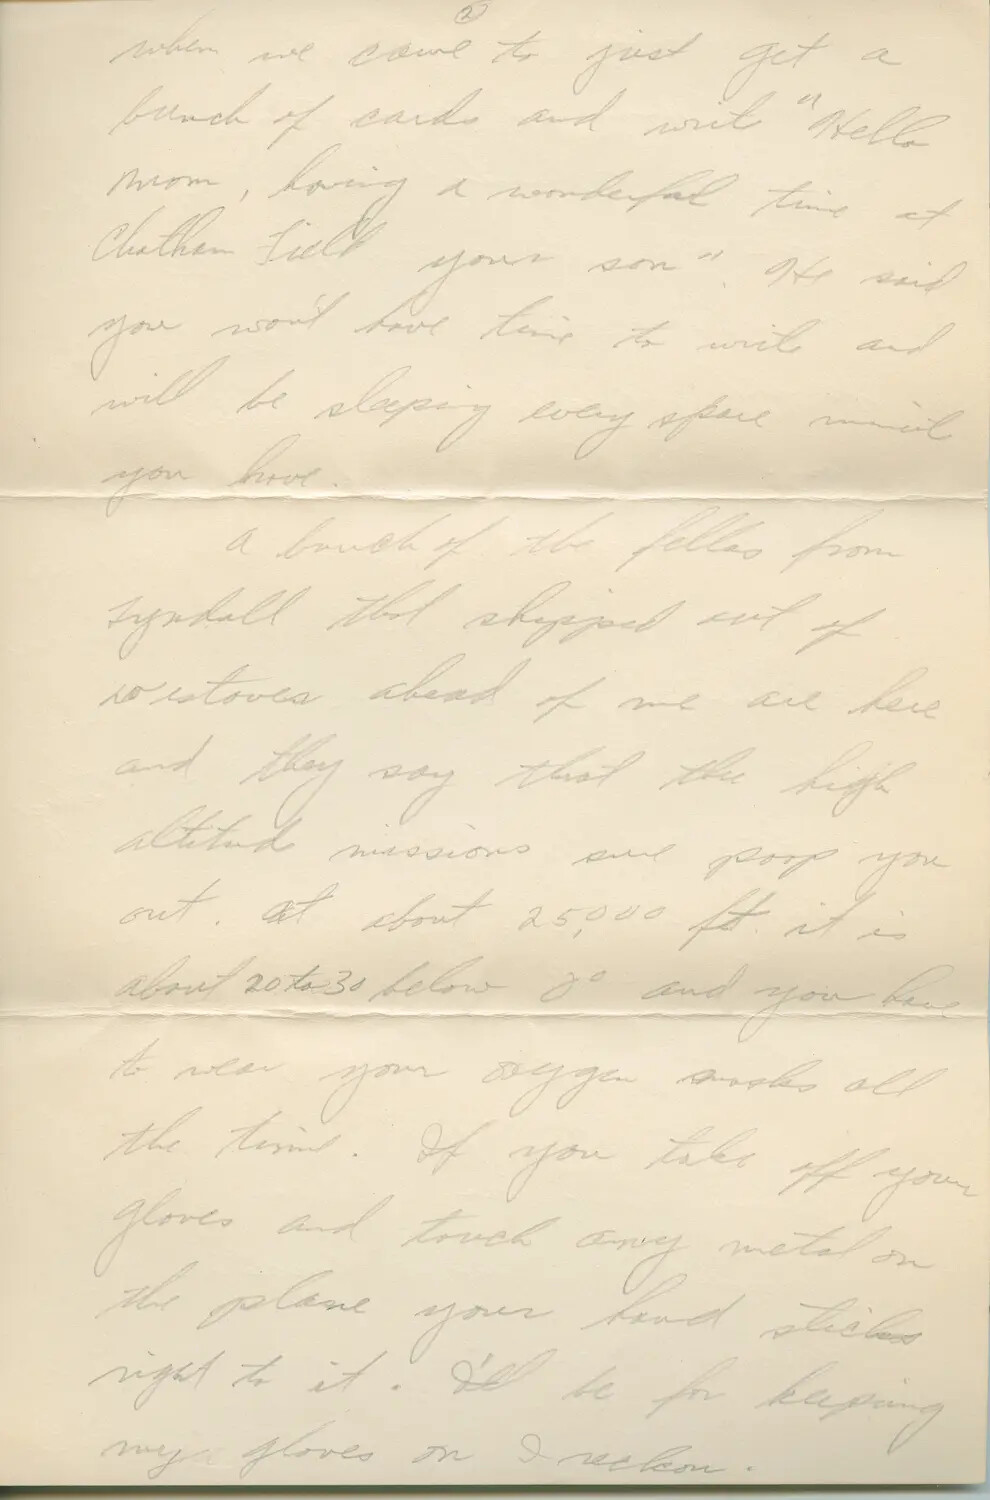 2
when we came to just get a
bunch of cards and write "Hello
Mom, having a wonderful time at
Chatham Field your son". He said
you won't have time to write and
will be sleeping every spare minute
you have.
A bunch of the fellas from
Tyndall that shipped out of
Westover ahead of me are here
and they say that the high
altitude missions sure poop you
out. At about 25,000 ft. it is
about 20 to 30 below 0° and you have
to wear your oxygen masks all
the time. If you take off your
gloves and touch any metal on
the plane your hand sticks
right to it. I'll be for keeping
my gloves on I reckon.